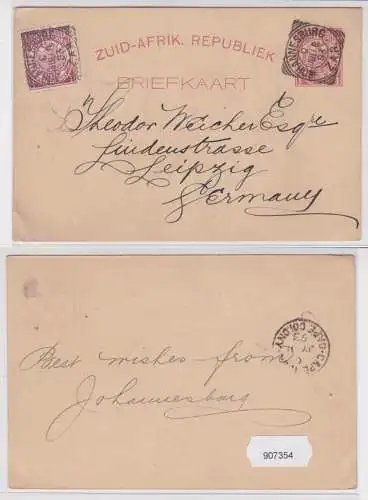 ZUID-AFRIK. REPUBLIEK
BRIEFKAART
JOHANNESBURG
Theodor Weicher Esqre
Lindenstrasse
Leipzig
Germany
CAPE COLONY
93
Best wishes from
Johannesburg
907354